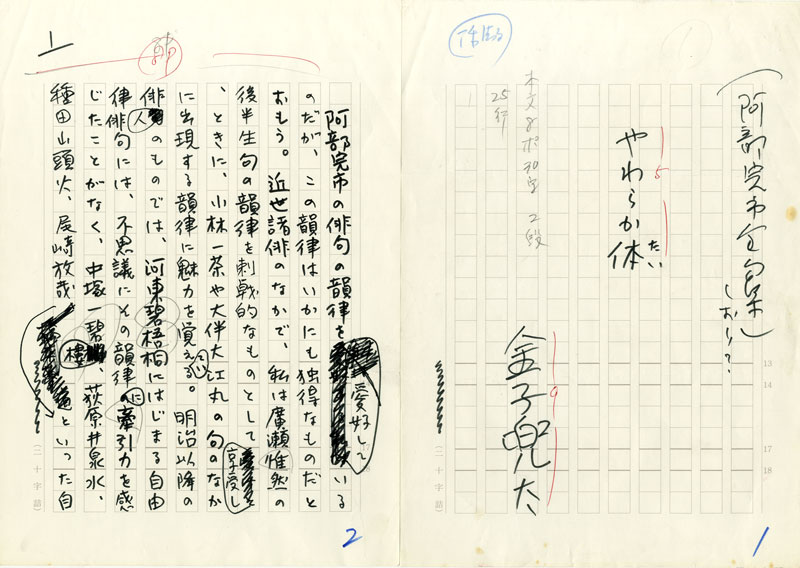 1
活版
(阿部完市全句集)
しおり?
5
やわらか体
たい
本文8ポ
25行
2段
9
金子兜太
13
14
17
18
(二十字詰)
1
1
阿部完市の俳句の韻律を愛好している
のだが、この韻律はいかにも独得なものだと
おもう。近世諸俳のなかで、私は廣瀬惟然の
後半生句の韻律を刺戟的なものとして享受し
、ときに、小林一茶や大伴大江丸の句のなか
に出現する韻律に魅力を覚える。明治以降の
俳人のものでは、河東碧梧桐にはじまる自由
律俳句には、不思議にその韻律に牽引力を感
じたことがなく、中塚一碧樓、荻原井泉水、
種田山頭火、尾崎放哉といった自
(二十字詰)
2